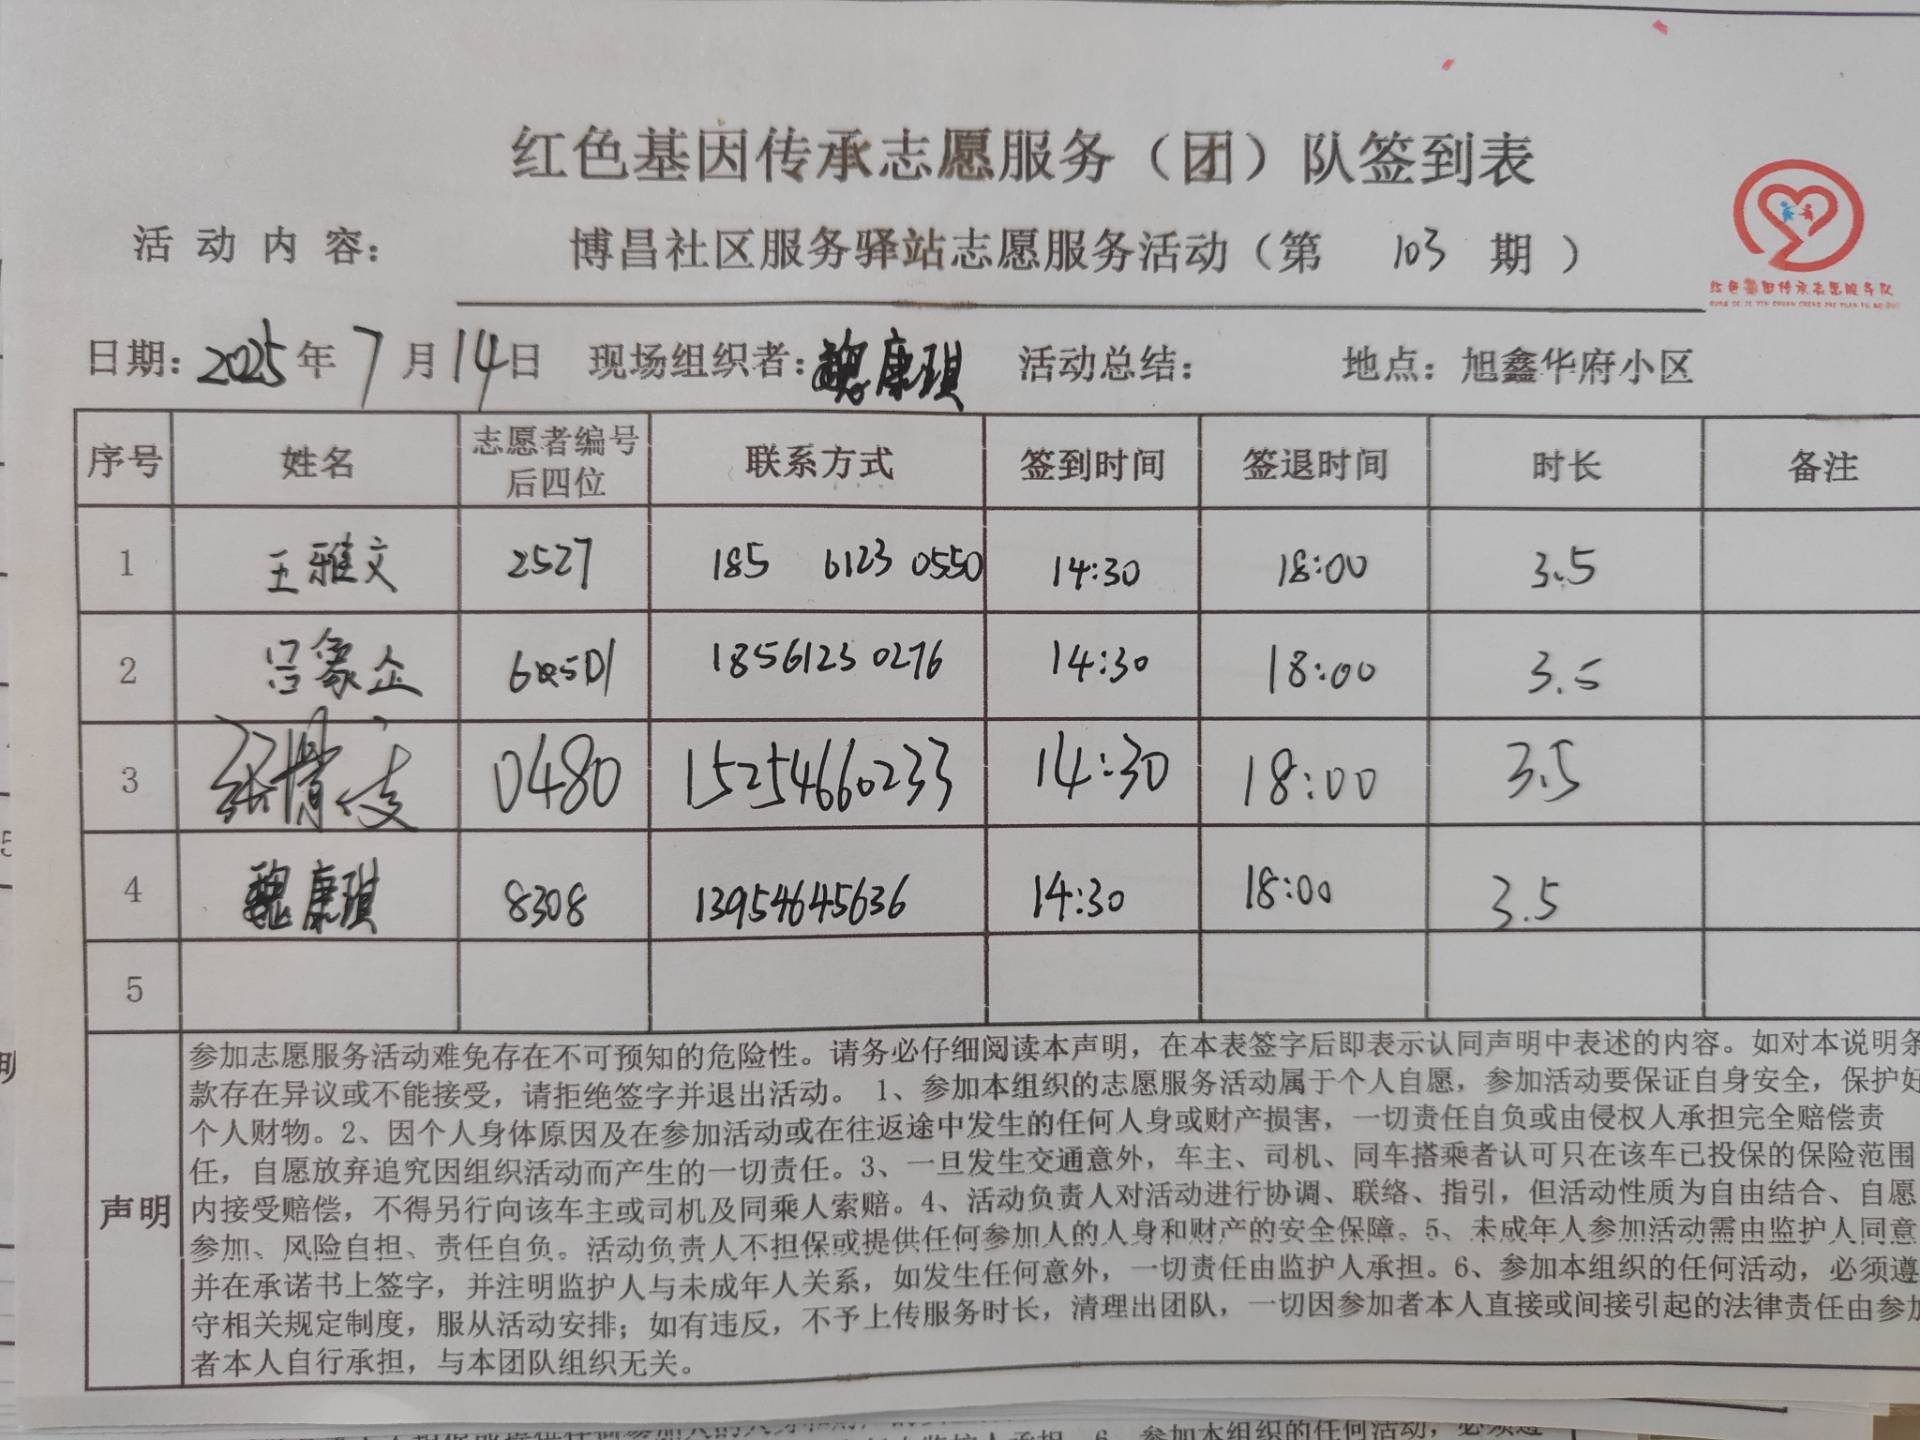 红色基因传承志愿服务（团）队签到表
活动内容： 博昌社区服务驿站志愿服务活动（第 103 期）
红色基因传承志愿服务队
日期：2025年7月14日 现场组织者：魏康琪 活动总结： 地点：旭鑫华府小区
序号 姓名 志愿者编号后四位 联系方式 签到时间 签退时间 时长 备注
1 王雅文 2527 185 6123 0550 14:30 18:00 3.5
2 吕象企 18561230276 14:30 18:00 3.5
3 张 0480 15254660233 14:30 18:00 3.5
4 魏康琪 8308 13954645636 14:30 18:00 3.5
5
声明
参加志愿服务活动难免存在不可预知的危险性。请务必仔细阅读本声明，在本表签字后即表示认同声明中表述的内容。如对本说明条
款存在异议或不能接受，请拒绝签字并退出活动。 1、参加本组织的志愿服务活动属于个人自愿，参加活动要保证自身安全，保护好
个人财物。2、因个人身体原因及在参加活动或在往返途中发生的任何人身或财产损害，一切责任自负或由侵权人承担完全赔偿责
任，自愿放弃追究因组织活动而产生的一切责任。3、一旦发生交通意外，车主、司机、同车搭乘者认可只在该车已投保的保险范围
内接受赔偿，不得另行向该车主或司机及同乘人索赔。4、活动负责人对活动进行协调、联络、指引，但活动性质为自由结合、自愿
参加、风险自担、责任自负。活动负责人不担保或提供任何参加人的人身和财产的安全保障。5、未成年人参加活动需由监护人同意
并在承诺书上签字，并注明监护人与未成年人关系，如发生任何意外，一切责任由监护人承担。6、参加本组织的任何活动，必须遵
守相关规定制度，服从活动安排；如有违反，不予上传服务时长，清理出团队，一切因参加者本人直接或间接引起的法律责任由参加
者本人自行承担，与本团队组织无关。